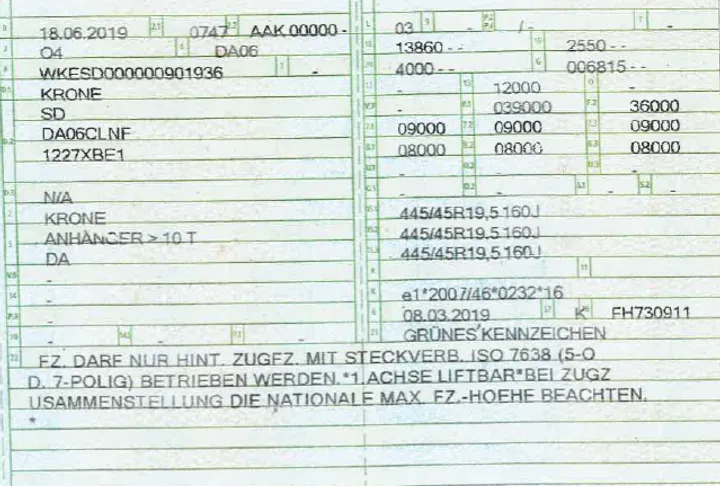 18.06.2019 0747 AAK 00000 -
04 DA06
WKESD000000901936 -
KRONE
SD
DA06CLNF
1227XBE1
N/A
KRONE
ANHÄNGER > 10 T
DA
-
-
-
- - -
03 - - / - -
13860 - - 2550 - -
4000 - - 006815 - -
- 12000 -
- 039000 36000
09000 09000 09000
08000 08000 08000
- - -
- - - -
445/45R19,5 160J
445/45R19,5 160J
445/45R19,5 160J
- -
e1*2007/46*0232*16
08.03.2019 K FH730911
GRÜNES KENNZEICHEN
FZ. DARF NUR HINT. ZUGFZ. MIT STECKVERB. ISO 7638 (5-O
D. 7-POLIG) BETRIEBEN WERDEN.*1.ACHSE LIFTBAR*BEI ZUGZ
USAMMENSTELLUNG DIE NATIONALE MAX. FZ.-HOEHE BEACHTEN.
*